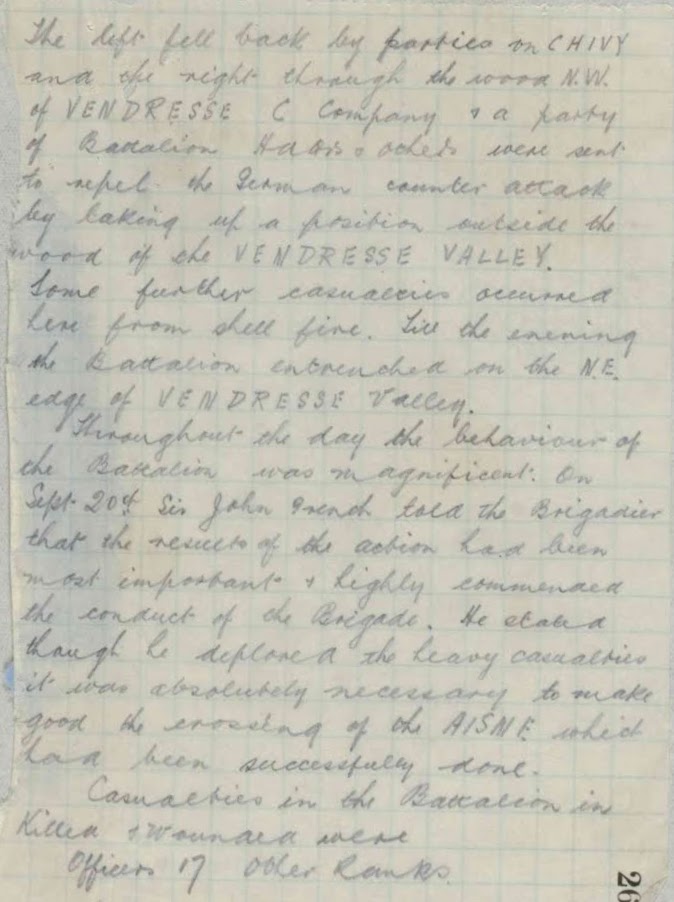 The left fell back by parties on CHIVY
and the right through the wood N.W.
of VENDRESSE C Company & a party
of Battalion Hdqrs & others were sent
to repel the German counter attack
by taking up a position outside the
wood of the VENDRESSE VALLEY.
Some further casualties occurred
here from shell fire. Till the evening
the Battalion entrenched on the N.E.
edge of VENDRESSE Valley.
Throughout the day the behaviour of
the Battalion was magnificent. On
Sept 20th Sir John French told the Brigadier
that the results of the action had been
most important & highly commended
the conduct of the Brigade. He stated
though he deplored the heavy casualties
it was absolutely necessary to make
good the crossing of the AISNE which
had been successfully done.
Casualties in the Battalion in
Killed & Wounded were
Officers 17 Other Ranks.
26